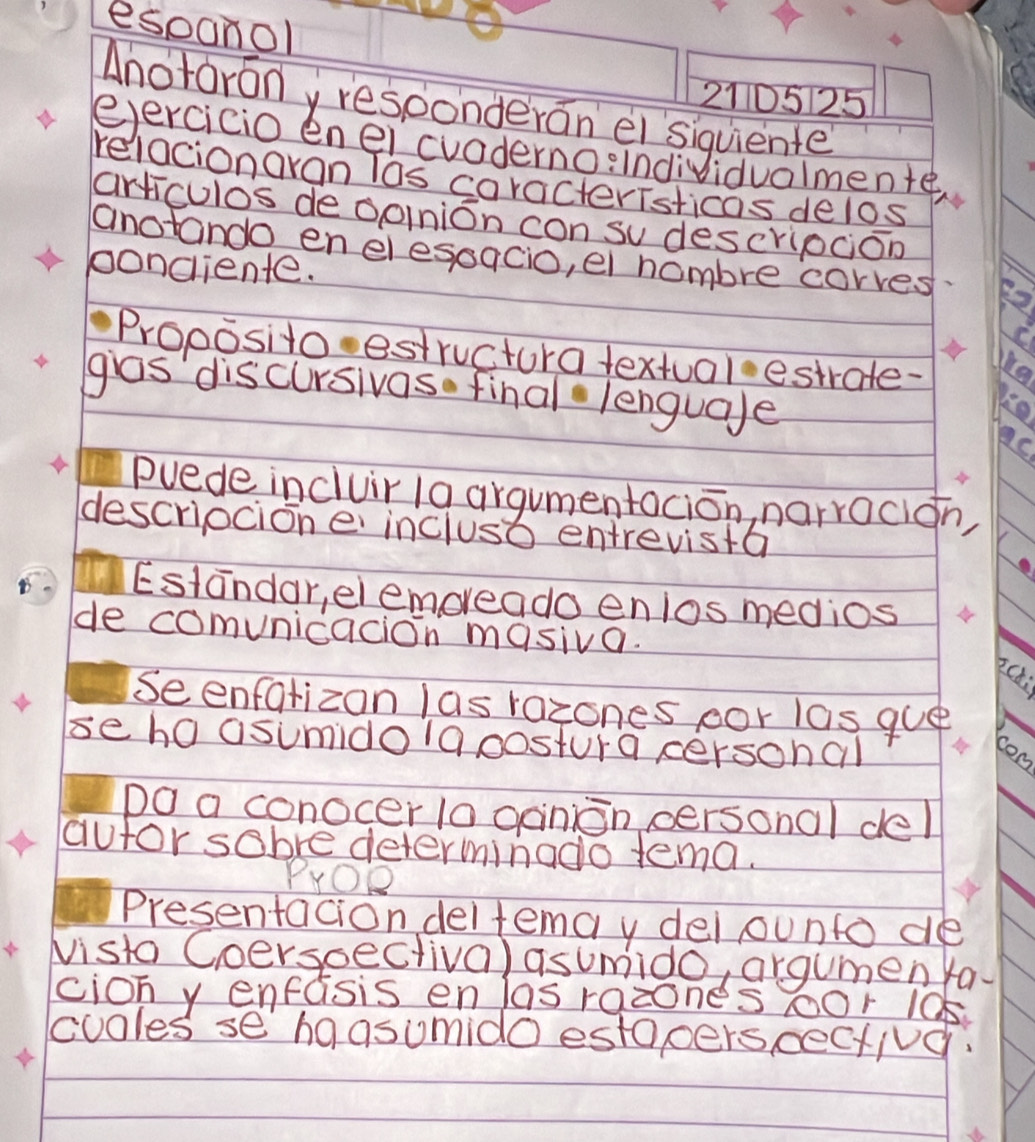 español
21 05 25
Anotarán y responderán el siguiente
ejercicio en el cuaderno: individualmente,
relacionaran las características de los
artículos de opinión con su descripción
anotando en el espacio, el nombre corres-
pondiente.
•Propósito •estructura textual •estrate-
gias discursivas •final •lenguaje
Puede incluir la argumentación, narración,
descripción e incluso entrevista
Estándar, el empleado en los medios
de comunicación masiva.
Se enfatizan las razones por las que
se ha asumido la postura personal
Da a conocer la opinión personal del
autor sobre determinado tema.
Prop
Presentación del tema y del punto de
vista (perspectiva) asumido, argumenta-
ción y enfasis en las razones por las
cuales se ha asumido esta perspectiva.